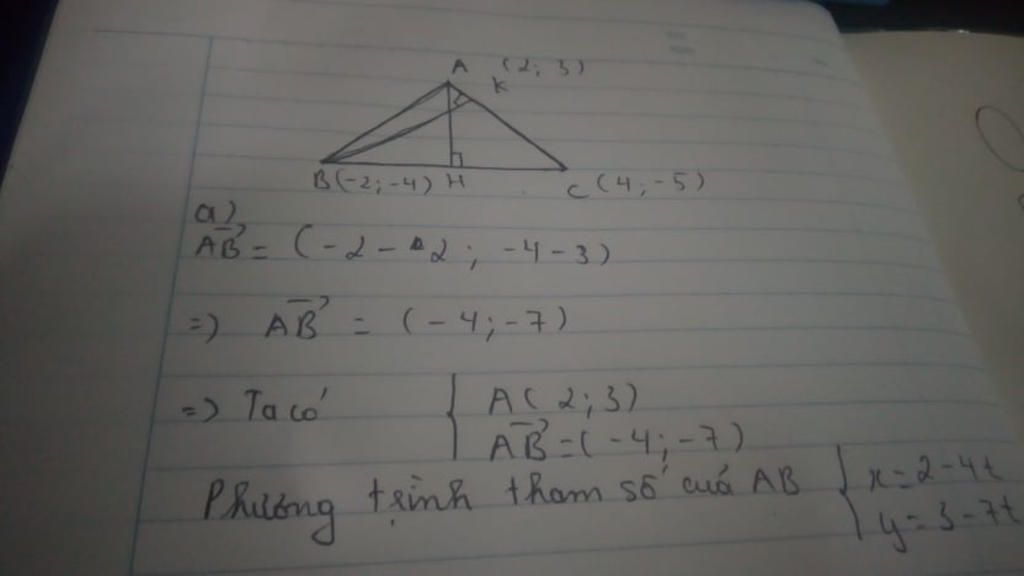 A (2; 3)
K
B(-2; -4) H C (4; -5)
a)
AB⃗ = (-2 - 2; -4 - 3)
=) AB⃗ = (-4; -7)
=) Ta có { A(2; 3)
AB⃗ = (-4; -7)
Phương trình tham số của AB { x = 2 - 4t
y = 3 - 7t